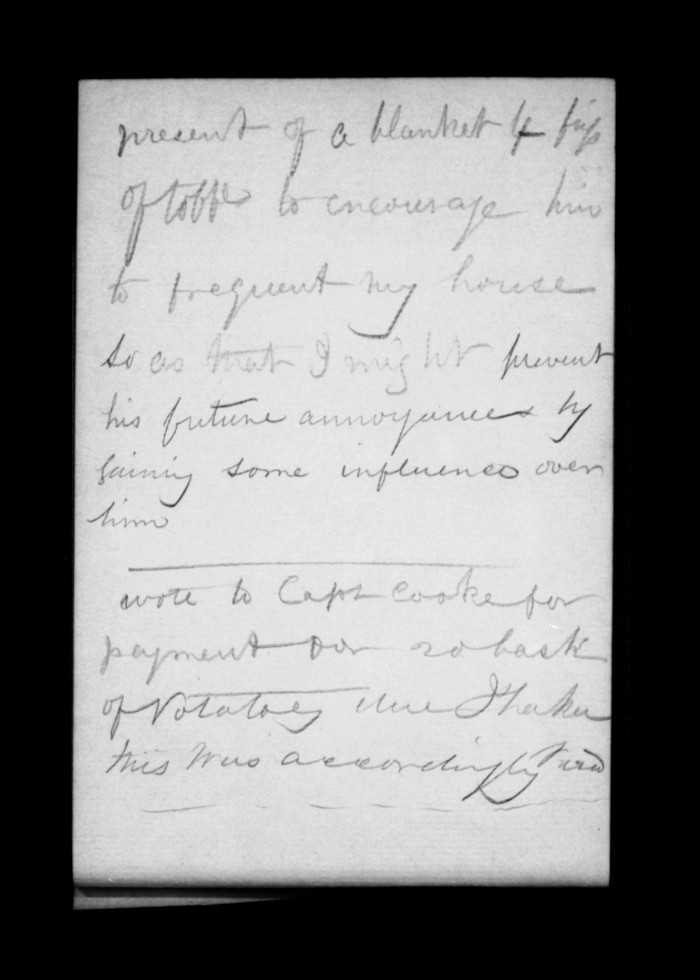 present of a blanket & figs
of tobbo to encourage him
to frequent my house
so as that I might prevent
his future annoyances by
gaining some influence over
him
wote to Capt Cooke for
payment for 20 bask
of Potatoes due
this was accordingly